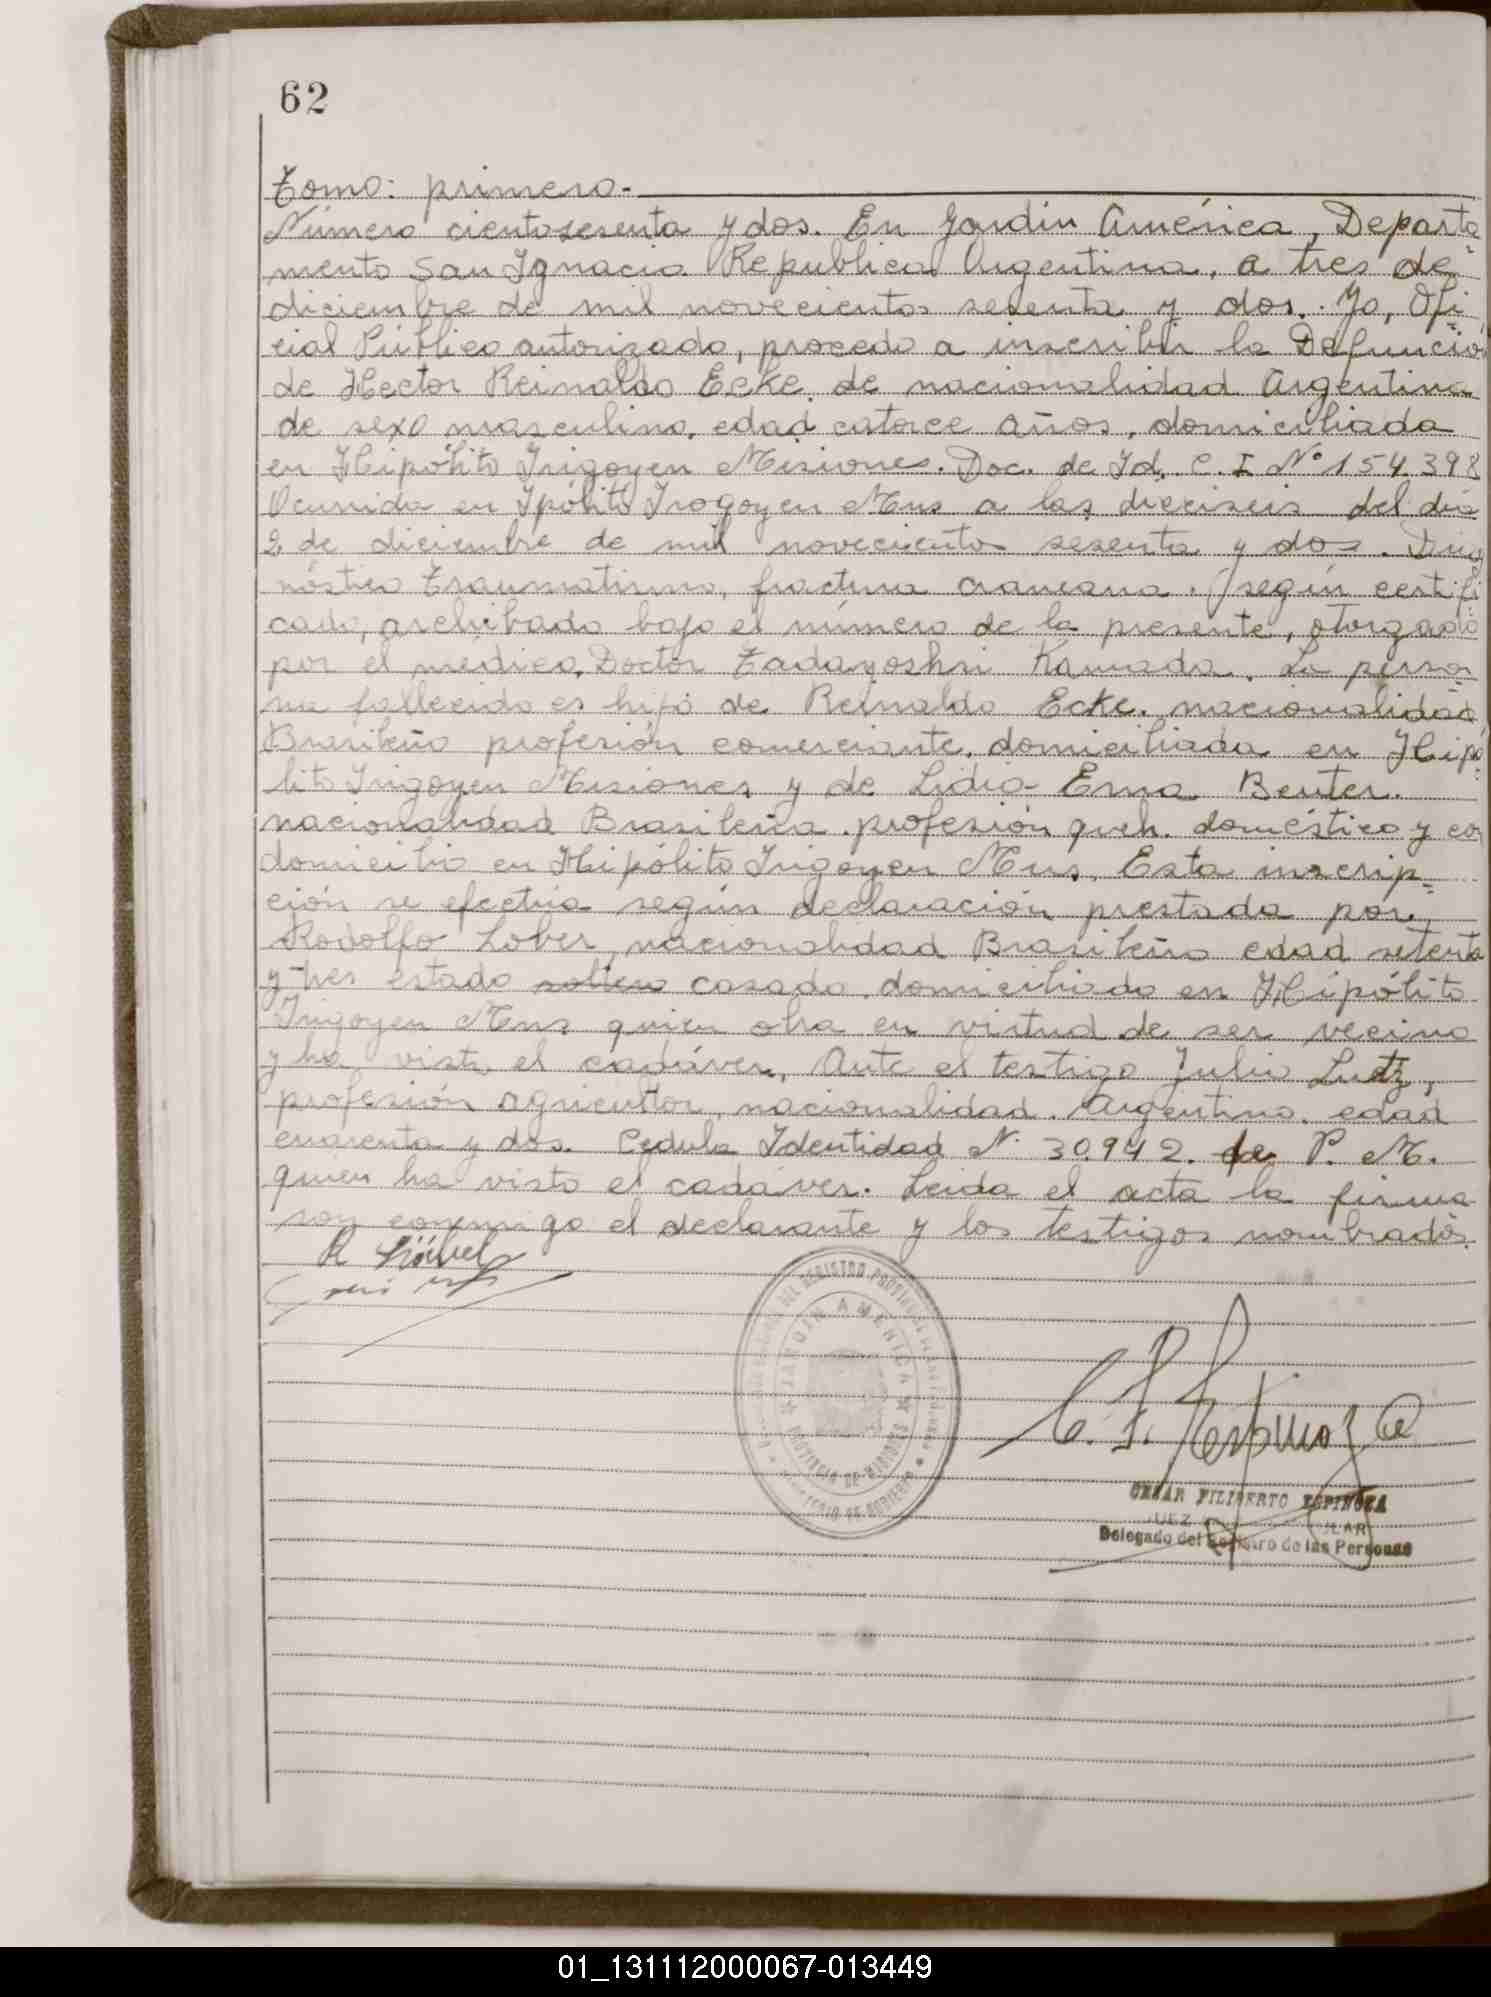 62
Tomo: primero.-
Número cientosesenta y dos. En Jardin América, Departa-
mento San Ignacio Republica Argentina, a tres de
diciembre de mil novecientos sesenta y dos. Yo, Ofi-
cial Público autorizado, procedo a inscribir la Defuncion
de Hector Reinaldo Ecke. de nacionalidad Argentina
de sexo masculino, edad catorce años, domiciliada
en Hipólito Irigoyen Misiones. Doc. de Id. C. I. Nº 154.398
Ocurrida en Ipólito Irogoyen Mns a las dieciseis del dia
2 de diciembre de mil novecientos sesenta y dos. Diag-
nóstico Traumatismo, fractura craneana. según certifi-
cado, archibado bajo el número de la presente, otorgado
por el medico, Doctor Tadayoshi Kamada. La perso-
na fallecida es hijo de Reinaldo Ecke. nacionalidad
Brasileña profesión comerciante. domiciliada en Hipó-
lito Irigoyen Misiones y de Lidia Erna Benter.
nacionalidad Brasileña. profesión queh. doméstico y con
domicilio en Hipólito Irigoyen Mns. Esta inscrip-
ción se efectúa según declaración prestada por.
Rodolfo Lober, nacionalidad Brasileña edad setenta
y tres estado soltero casado. domiciliado en Hipólito
Irigoyen Mns quien obra en virtud de ser vecino
y ha visto el cadáver. Ante el testigo Julio Lutz,
profesión agricultor, nacionalidad. Argentino. edad
cuarenta y dos. Cedula Identidad N. 30.942. de P. M.
quien ha visto el cadáver. Leida el acta la firma
son conmigo el declarante y los testigos nombrados.
JARDIN AMERICA
PROVINCIA DE MISIONES
C. F. Espinoza
CESAR FILIBERTO ESPINOZA
JUEZ
Delegado del Registro de las Personas
01_131112000067-013449